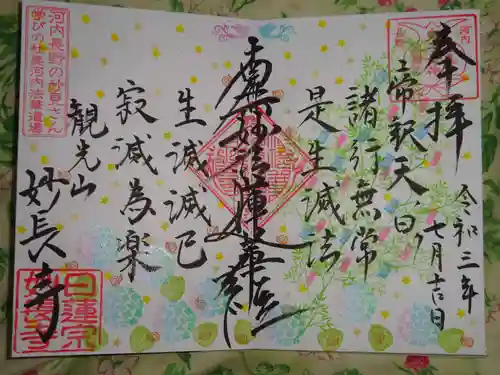 奉拝
帝釈天
令和三年
七月吉日
諸行無常
是生滅法
南無妙法蓮華経
生滅滅已
寂滅為楽
観光山
妙長寺
河内長野の妙見さん
学びの杜奥河内法華道場
日蓮宗
妙長寺